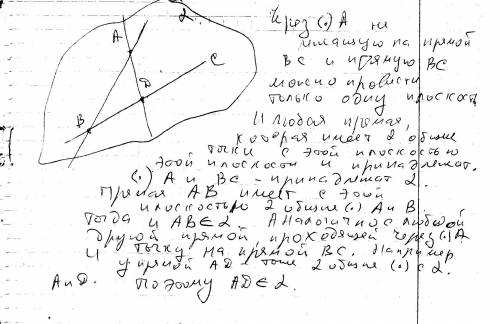 α.
A
C
D
B
Через (.) A не
лежащую на прямой
BC и прямую BC
можно провести
только одну плоскость
И любая прямая,
которая имеет 2 общие
точки с этой плоскостью
этой плоскости и принадлежат.
(.) A и BC - принадлежат α.
Прямая AB имеет с этой
плоскостью 2 общие (.) A и B.
Тогда и AB ∈ α. Аналогично с любой
другой прямой проходящей через (.) A
и точку на прямой BC. Например
у прямой AD - тоже 2 общие (.) с α.
A и D. Поэтому AD ∈ α.